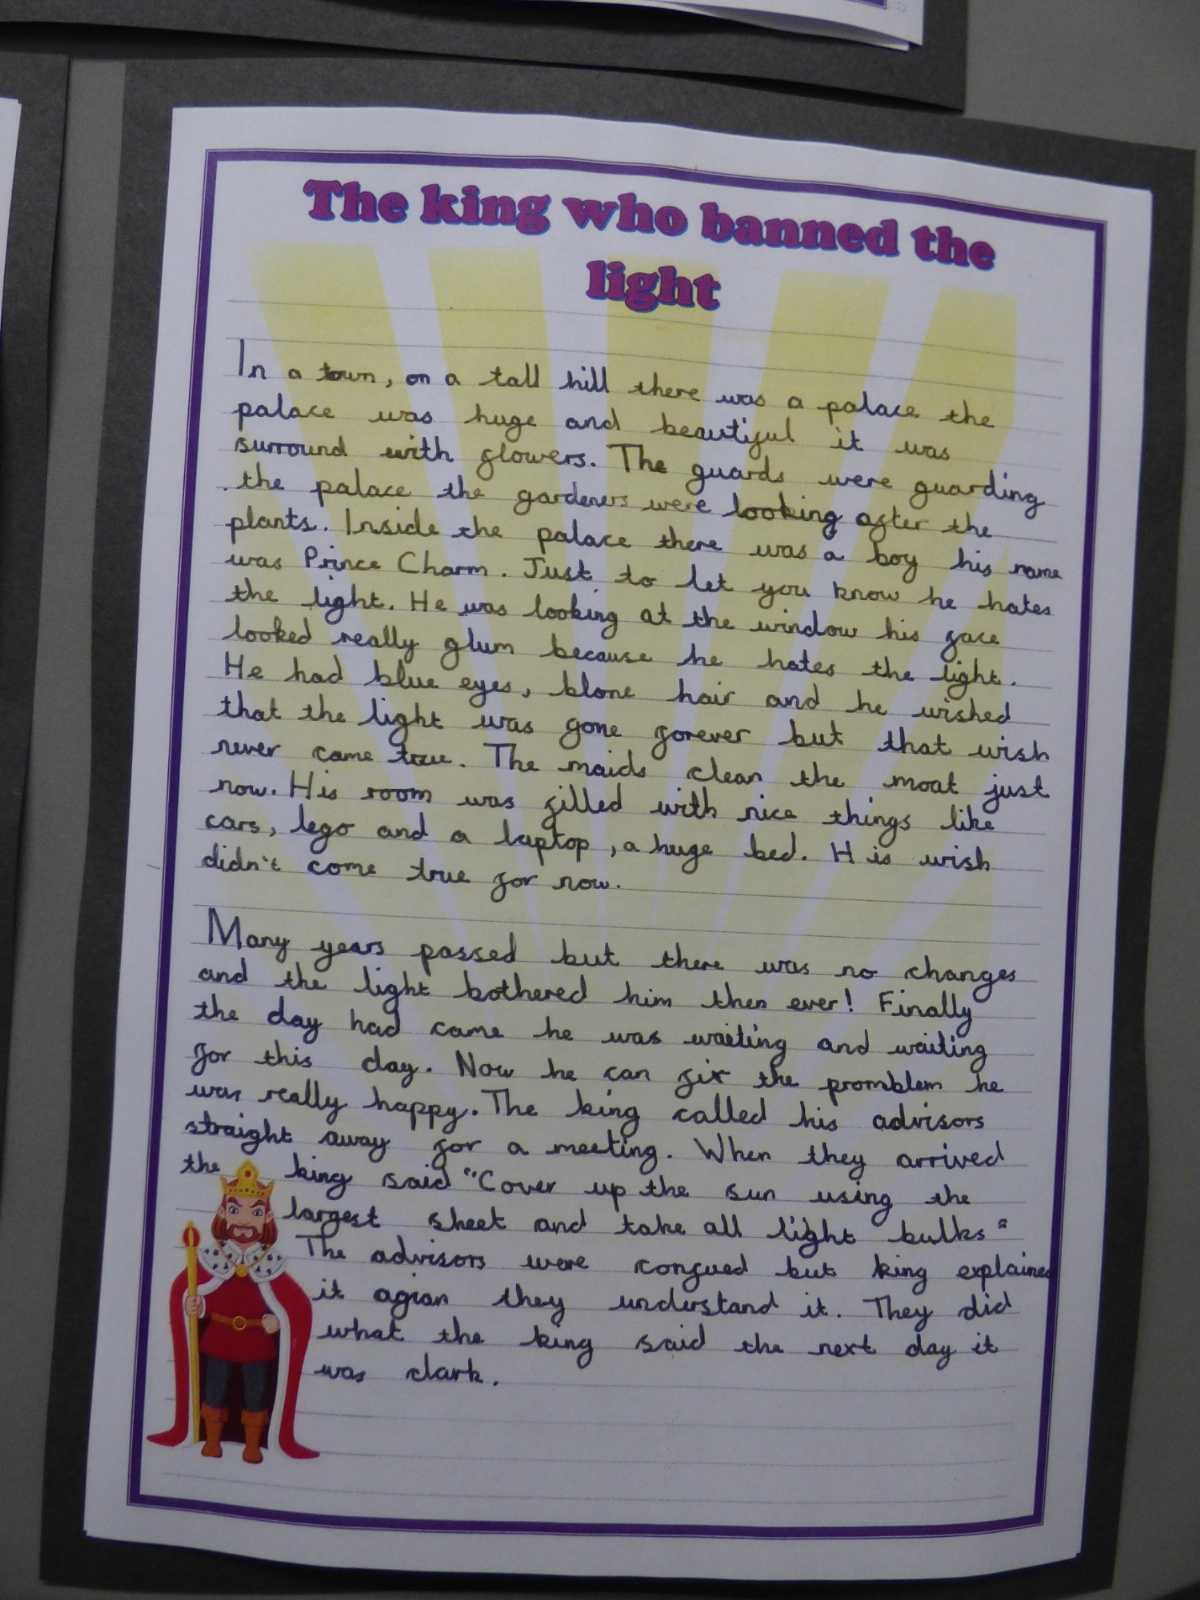 The king who banned the
light
In a town, on a tall hill there was a palace the
palace was huge and beautiful it was
surround with flowers. The guards were guarding
the palace the gardeners were looking after the
plants. Inside the palace there was a boy his name
was Prince Charm. Just to let you know he hates
the light. He was looking at the window his face
looked really glum because he hates the light.
He had blue eyes, blone hair and he wished
that the light was gone forever but that wish
never came true. The maids clean the moat just
now. His room was filled with nice things like
cars, lego and a laptop, a huge bed. His wish
didn't come true for now.
Many years passed but there was no changes
and the light bothered him then ever! Finally
the day had came he was waiting and waiting
for this day. Now he can fix the promblem he
was really happy. The king called his advisors
straight away for a meeting. When they arrived
the king said "Cover up the sun using the
largest sheet and take all light bulks"
The advisors were confued but king explained
it agian they understand it. They did
what the king said the next day it
was dark.